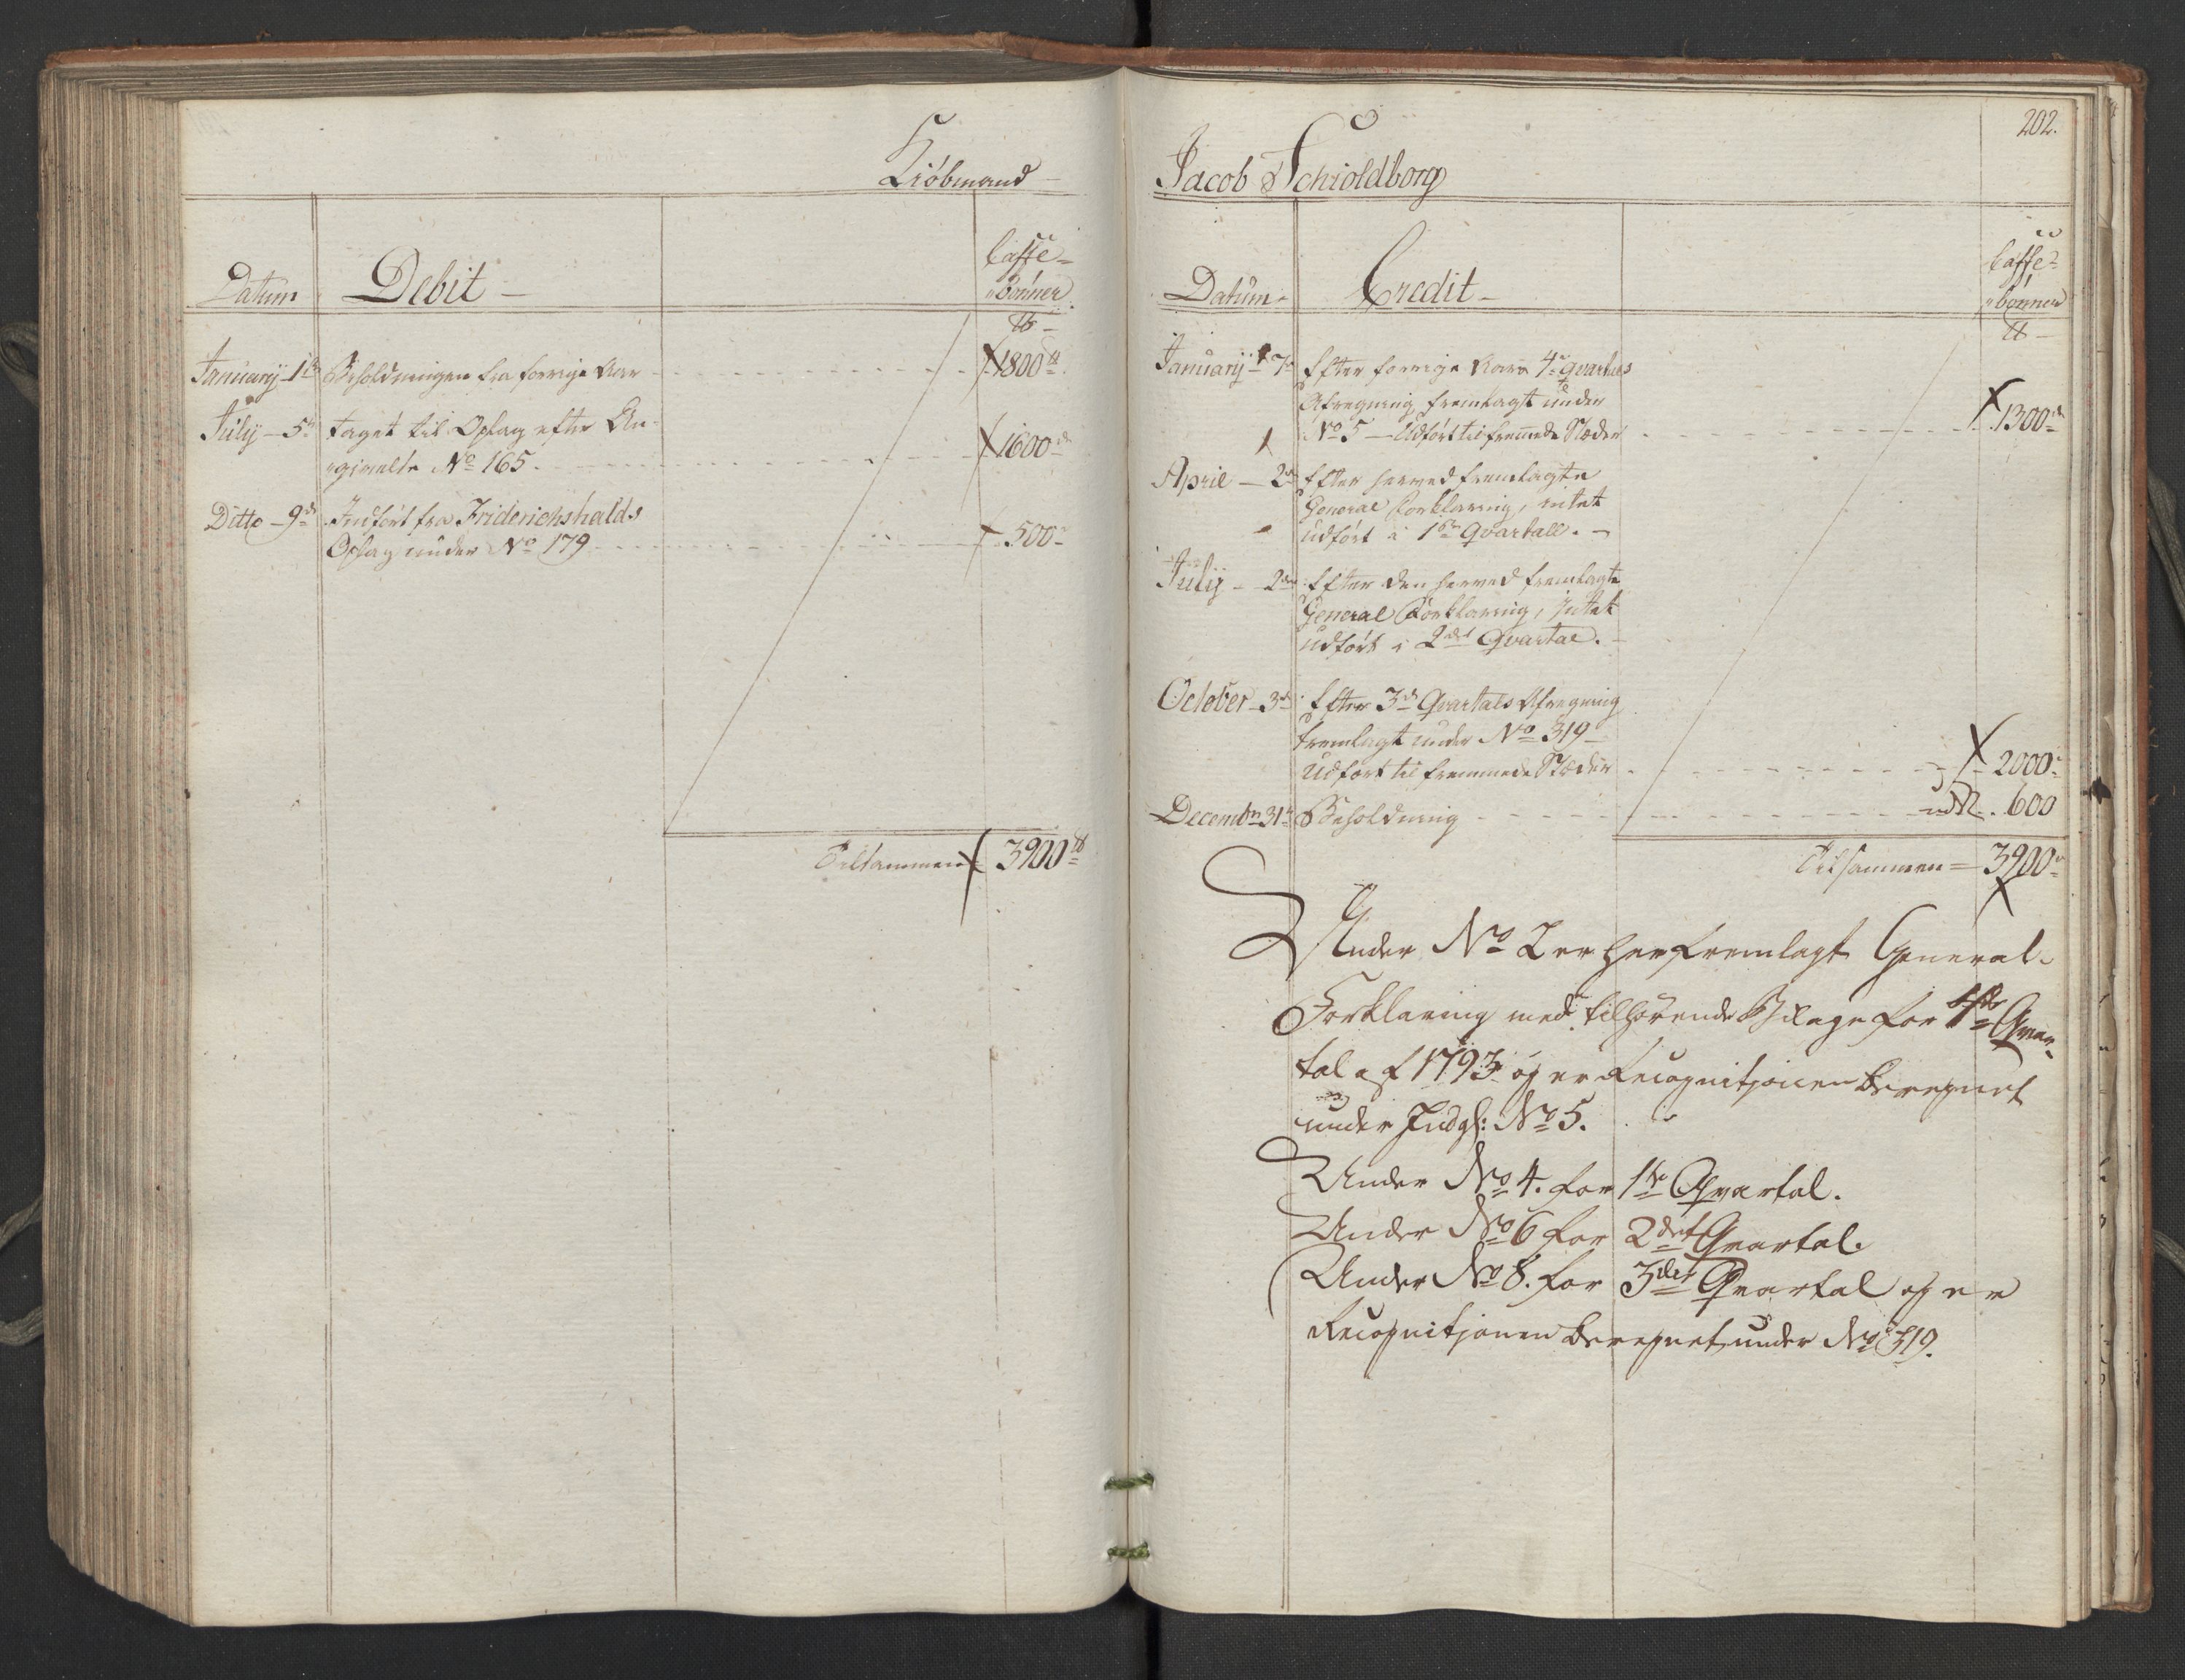 Kiöbmand
Datum
Debit
Caffe-
Bönner
℔
January 1te Beholdningen fra forrige Aar 1800 ℔
July 5te taget til Oplag efter An-
givelse No 165 1600
Ditto 9de Indfört fra Friderichshalds
Oplag under No 179 500
Tilsammen 3900 ℔
202.
Jacob Schioldborg
Datum
Credit
Caffe-
bönner
℔
January 7de Efter forrige Aars 4de Qvartals
Afregning fremlagt under
No 5 – Udfört til fremmede Stæder 1300
April 2den Efter herved fremlagte
General Forklaring, intet
udfört i 1ste Qvartall.
July 2den Efter den herved fremlagte
General Forklaring, Intet
udfört i 2det Qvartal.
October 3de Efter 3de Qvartals Afregning
fremlagt under No 319
Udfört til fremmede Stæder 2000
Decembr 31te Beholdning 600
Tilsammen = 3900
Under No 2 er her fremlagt General-
Forklaring med tilhörende Bilage for 4de Qvar-
tal af 1793 og er Recognitionen beregnet
under Indgl: No 5.
Under No 4. for 1ste Qvartal.
Under No 6 for 2det Qvartal.
Under No 8. for 3die Qvartal og er
Recognitionen beregnet under No 319.